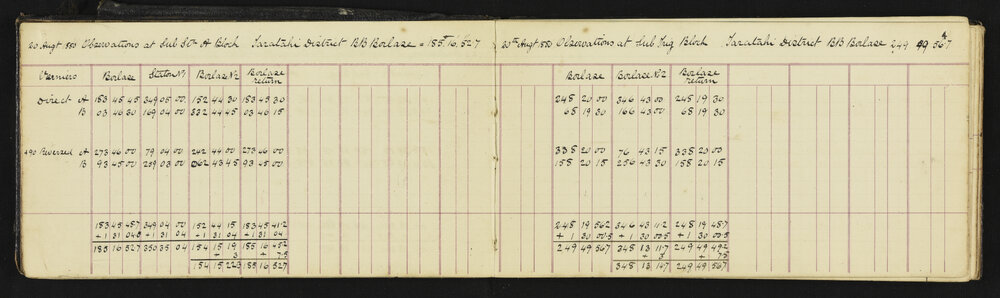 20 Augt 1880 Observations at Sub Stn A Block Taratahi District BB Borlase = 185.16.52.7
Verniers Borlase Station No 1 Borlase No 2 Borlase return
Direct A 183 45 45 349 05 00 152 44 30 183 45 30
B 03 46 30 169 04 00 332 44 45 03 46 15
+90 Reversed A 273 46 00 79 04 00 242 44 00 273 46 00
B 93 45 00 259 03 00 062 43 45 93 45 00
183 45 48.7 349 04 00 152 44 15 183 45 41.2
+1 31 04.0 +1 31 04 +1 31 04 +1 31 04
185 16 52.7 350 35 04 154 15 19 185 16 45.2
+ 3 + 7.5
154 15 22.3 185 16 52.7
20th Augt 1880 Observations at Sub Trig Block Taratahi District BB Borlase 249 49 56.7
Borlase Borlase No 2 Borlase return
248 20 00 346 43 00 248 19 30
68 19 30 166 43 00 68 19 30
338 20 00 76 43 15 338 20 00
158 20 15 256 43 30 158 20 15
248 19 56.2 346 43 11.2 248 19 48.7
+ 1 30 00.5 + 1 30 00.5 + 1 30 00.5
249 49 56.7 348 13 11.7 249 49 49.2
+ 3 + 7.5
348 13 14.7 249 49 56.7